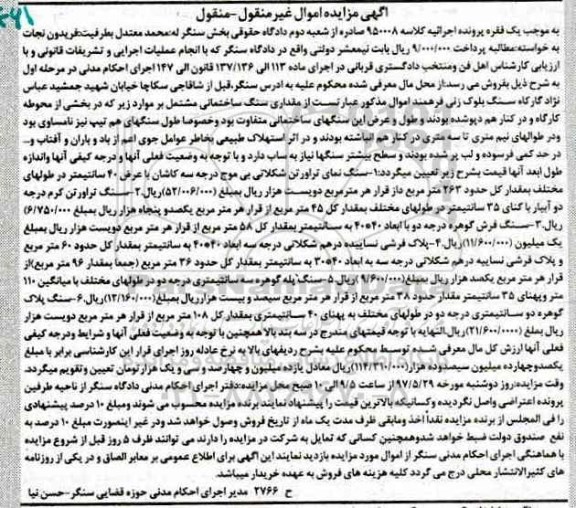 آگهی مزایده اموال غیرمنقول-منقول
به موجب یک فقره پرونده اجرائیه کلاسه ۹۵۰۰۰۸ صادره از شعبه دوم دادگاه حقوقی بخش سنگر له:محمد معتدل بطرفیت:فریدون نجات
به خواسته:مطالبه پرداخت ۹/۰۰۰/۰۰۰ ریال بابت نیمعشر دولتی واقع در دادگاه سنگر که با انجام عملیات اجرایی و تشریفات قانونی و با
ارزیابی کارشناس اهل فن ومنتخب دادگستری قربانی در اجرای ماده ۱۱۳ الی ۱۳۷/۱۳۶ قانون الی ۱۴۷ اجرای احکام مدنی در مرحله اول
به شرح ذیل بفروش می رسد:از محل مال معرفی شده محکوم علیه به ادرس سنگر،قبل از شاقاجی سکاچا خیابان شهید جمشید عباس
نژاد گارکاه سنگ بلوک زنی فرهمند اموال مذکور عبارتست از مقداری سنگ ساختمانی مشتمل بر موارد زیر که در بخشی از محوطه
کارگاه و در کنار هم دپوشده بودند و طول و عرض این سنگهای ساختمانی متفاوت بود وخصوصا طول سنگهای هم تیپ نیز نامساوی بود
ودر طولهای نیم متری تا سه متری در کنار هم انباشته بودند و در اثر استهلاک طبیعی بخاطر عوامل جوی اعم از باد و باران و آفتاب و...
در حد کمی فرسوده و لب پر شده بودند و سطح بیشتر سنگها نیاز به ساب دارد و با توجه به وضعیت فعلی آنها و درجه کیفی آنها واندازه
طول ابعد آنها قیمت بشرح زیر تعیین میگردد:۱-سنگ نمای تراورتن شکلاتی بی موج درجه سه کاشان با عرض ۴۰ سانتیمتر در طولهای
مختلف بمقدار کل حدود ۲۶۳ متر مربع داز قرار هر مترمربع دویست هزار ریال بمبلغ (۵۲/۰۰۶/۰۰۰)ریال.۲-سنگ تراورتن کرم درجه
دو آبیار با کنای ۳۵ سانتیمتر در طولهای مختلف بمقدار کل ۴۵ متر مربع از قرار هر متر مربع یکصدو پنجاه هزار ریال بمبلغ (۶/۷۵۰/۰۰۰)
ریال.۳-سنگ فرش گوهره درجه دو با ابعاد ۴۰*۴۰ به سـانتیمتر بمقدار کل ۵۸ متر مربع از قرار هر متر مربع دویست هزار ریال بمبلغ
یک میلیون (۱۱/۶۰۰/۰۰۰)ریال.۴-پلاک فرشی نساییده درهم شکلاتی درجه سه ابعاد ۴۰*۴۰ به سانتیمتر بمقدار کل حدود ۶۰ متر مربع
و پلاک فرشی نساییه درهم شکلاتی درجه سه به ابعاد ۴۰*۳۰ به سانتیمتر بمقدار کل حدود ۳۶ متر مربع (جمعا بمقدار ۹۶ متر مربع)از
قرار هر متر مربع یکصد هزار ریال بمبلغ(۹/۶۰۰/۰۰۰)ریال.۵-سنگ پله گوهره سه سانتیمتری درجه دو در طولهای مختلف با میانگین ۱۱۰
متر وپهنای ۳۵ سانتیمتر مقدار حدود ۳۸ متر مربع از قرار هر متر مربع سیصد و بیست هزارریال بمبلغ(۱۲/۱۶۰/۰۰۰)ریال.۶-سنگ پلاک
گوهره دو سـانتیمتری درجه دو در طولهای مختلف به پهنای ۴۰ سـانتیمتری بمقدار کل ۱۰۸ متر مربع از قرار هر متر مربع دویست هزار
ریال بمبلغ (۲۱/۶۰۰/۰۰۰)ریال.النهایه با توجه قیمتهای مندرج در سه بند بالا همچنین با توجه به وضعیت فعلی آنها و شرایط ودرجه کیفی
فعلی آنها ارزش کل مال معرفی شـده توسـط محکوم علیه بشرح ردیفهای بالا به نرخ عادله روز اجرای قرار این کارشناسی برابر با مبلغ
یکصدوچهارده میلیون سیصدوده هزار(۱۱۴/۳۱۰/۰۰۰)ریال معادل یازده میلیون و چهارصد و سی و یک هزار تومان تعیین و تقویم میگردد.
وقت مزایده:روز دوشنبه مورخه ۹۷/۵/۲۹ از ساعت ۹/۵ الی ۱۰ صبح محل مزایده:دفتر اجرای احکام مدنی دادگاه سنگر از ناحیه طرفین
پرونده اعتراضی واصل نگردیده وکسانیکه بالاترین قیمت را پیشنهاد نمایند برنده مزایده محسوب می شوند ومبلغ ۱۰ درصد پیشنهادی
را فی المجلس از برنده مزایده نقدا اخذ ومابقی ظرف مدت یک ماه از تاریخ فروش وصول خواهد شد ودر غیر اینصورت مبلغ ۱۰ درصد به
نفع صندوق دولت ضبط خواهد شدوهمچنین کسانی که تمایل به شرکت در مزایده را دارند می توانند ظرف ۵ روز قبل از شروع مزایده
با هماهنگی اجرای احکام مدنی سنگر از اموال مورد مزایده بازدید نمایند این آگهی برای اطلاع عمومی بر معابر الصاق و در یکی از روزنامه
های کثیرالانتشار محلی درج می گردد کلیه هزینه های فروش به عهده خریدار میباشد.
ح ۲۷۶۶ مدیر اجرای احکام مدنی حوزه قضایی سنگر-حسن نیا